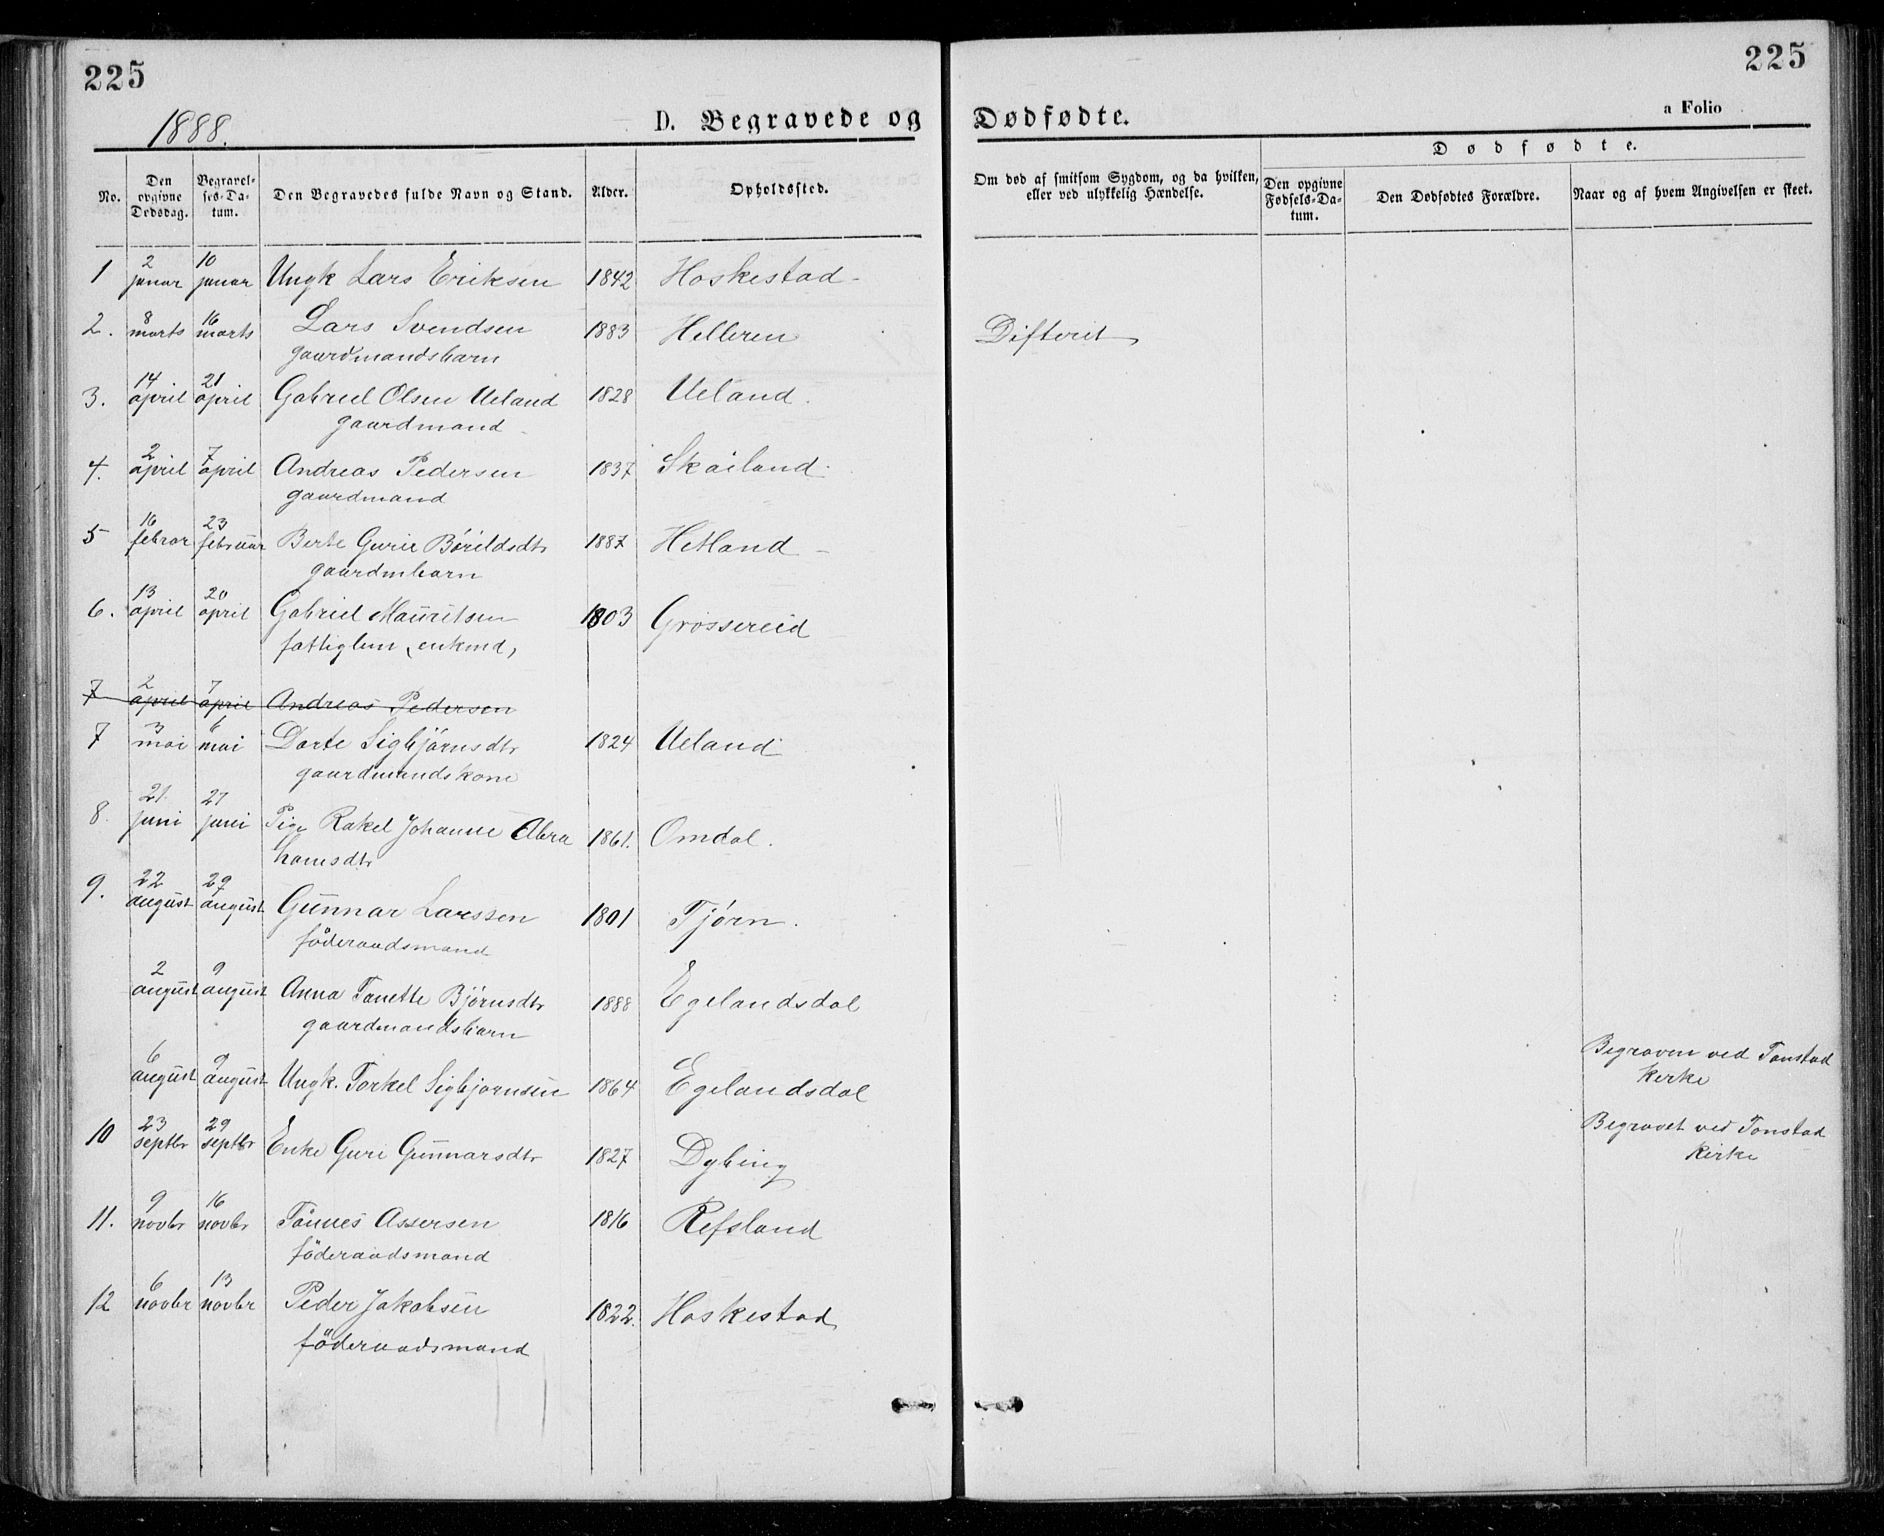 225
225
1888.
D. Begravede og Dødfødte.
a Folio
Dødfødte.
No.
Den opgivne Dødsdag.
Begravel-
ses-Da-
tum.
Den Begravedes fulde Navn og Stand.
Alder.
Opholdssted.
Om død af smitsom Sygdom, og da hvilken,
eller ved ulykkelig Hændelse.
Den opgivne
Fødsels-Da-
tum.
Den Dødfødtes Forældre.
Naar og af hvem Angivelsen er skeet.
1 2 januar 10 januar Ungk Lars Eriksen 1842 Hoskestad
2. 8 marts 16 marts Lars Svendsen 1883 Helleren Difterit
gaardmandsbarn
3. 14 april 21 april Gabriel Olsen Ueland 1828 Ueland.
gaardmand
4. 2 april 7 april Andreas Pedersen 1837 Skailand
gaardmand
5 16 febrar 23 februar Berte Gurie Bórildsdtr 1887 Hetland
gaardmbarn
6. 13 april 20 april Gabriel Mauritsen 1803 Grøssereid
fattiglem, enkmd,
7 2 april 7 april Andreas Pedersen
7 3 mai 6 mai Dorte Sigbjörnsdtr 1824 Ueland
gaardmandskone
8. 21. juni 27 juni Pige Rakel Johanne Abra 1861. Omdal.
hamsdtr
9. 22 august 29 august Gunnar Larssen 1801 Tjörn.
föderaadsmand
2 august 9 august Anna Tanette Björnsdtr 1888 Egelandsdal
gaardmandsbarn
6 august 9 august Ungk. Torkel Sigbjornsen 1864 Egelandsdal Begraven ved Tonstad
Kerke
10 23 septbr 29 septbr Enke Guri Gunnarsdtr 1827 Dybing Begravet ved Tonstad
Kirke
11. 9 novbr 16 novbr Tönnes Assersen 1816 Refsland
föderaadsmand
12 6 novbr 13 novbr Peder Jakobsen 1822. Hoskestad
föderaadsmand